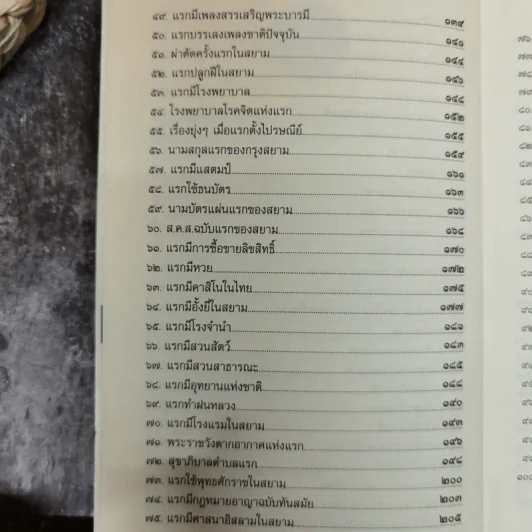 ๔๙. แรกมีเพลงสรรเสริญพระบารมี ๑๓๙
๕๐. แรกบรรเลงเพลงชาติปัจจุบัน ๑๔๑
๕๑. ผ่าตัดครั้งแรกในสยาม ๑๔๔
๕๒. แรกปลูกฝีในสยาม ๑๔๖
๕๓. แรกมีโรงพยาบาล ๑๔๘
๕๔. โรงพยาบาลโรคจิตแห่งแรก ๑๕๒
๕๕. เรื่องยุ่งๆ เมื่อแรกตั้งไปรษณีย์ ๑๕๕
๕๖. นามสกุลแรกของกรุงสยาม ๑๕๙
๕๗. แรกมีแสตมป์ ๑๖๑
๕๘. แรกใช้ธนบัตร ๑๖๓
๕๙. นามบัตรแผ่นแรกของสยาม ๑๖๖
๖๐. ส.ค.ส.ฉบับแรกของสยาม ๑๖๘
๖๑. แรกมีการซื้อขายลิขสิทธิ์ ๑๗๐
๖๒. แรกมีหวย ๑๗๒
๖๓. แรกมีคาสิโนในไทย ๑๗๕
๖๔. แรกมีอั้งยี่ในสยาม ๑๗๗
๖๕. แรกมีโรงจำนำ ๑๘๑
๖๖. แรกมีสวนสัตว์ ๑๘๓
๖๗. แรกมีสวนสาธารณะ ๑๘๕
๖๘. แรกมีอุทยานแห่งชาติ ๑๘๘
๖๙. แรกทำฝนหลวง ๑๙๐
๗๐. แรกมีโรงแรมในสยาม ๑๙๓
๗๑. พระราชวังตากอากาศแห่งแรก ๑๙๖
๗๒. สุขาภิบาลตำบลแรก ๑๙๘
๗๓. แรกใช้พุทธศักราชในสยาม ๒๐๐
๗๔. แรกมีกฎหมายอาญาฉบับทันสมัย ๒๐๓
๗๕. แรกมีศาสนาอิสลามในสยาม ๒๐๕